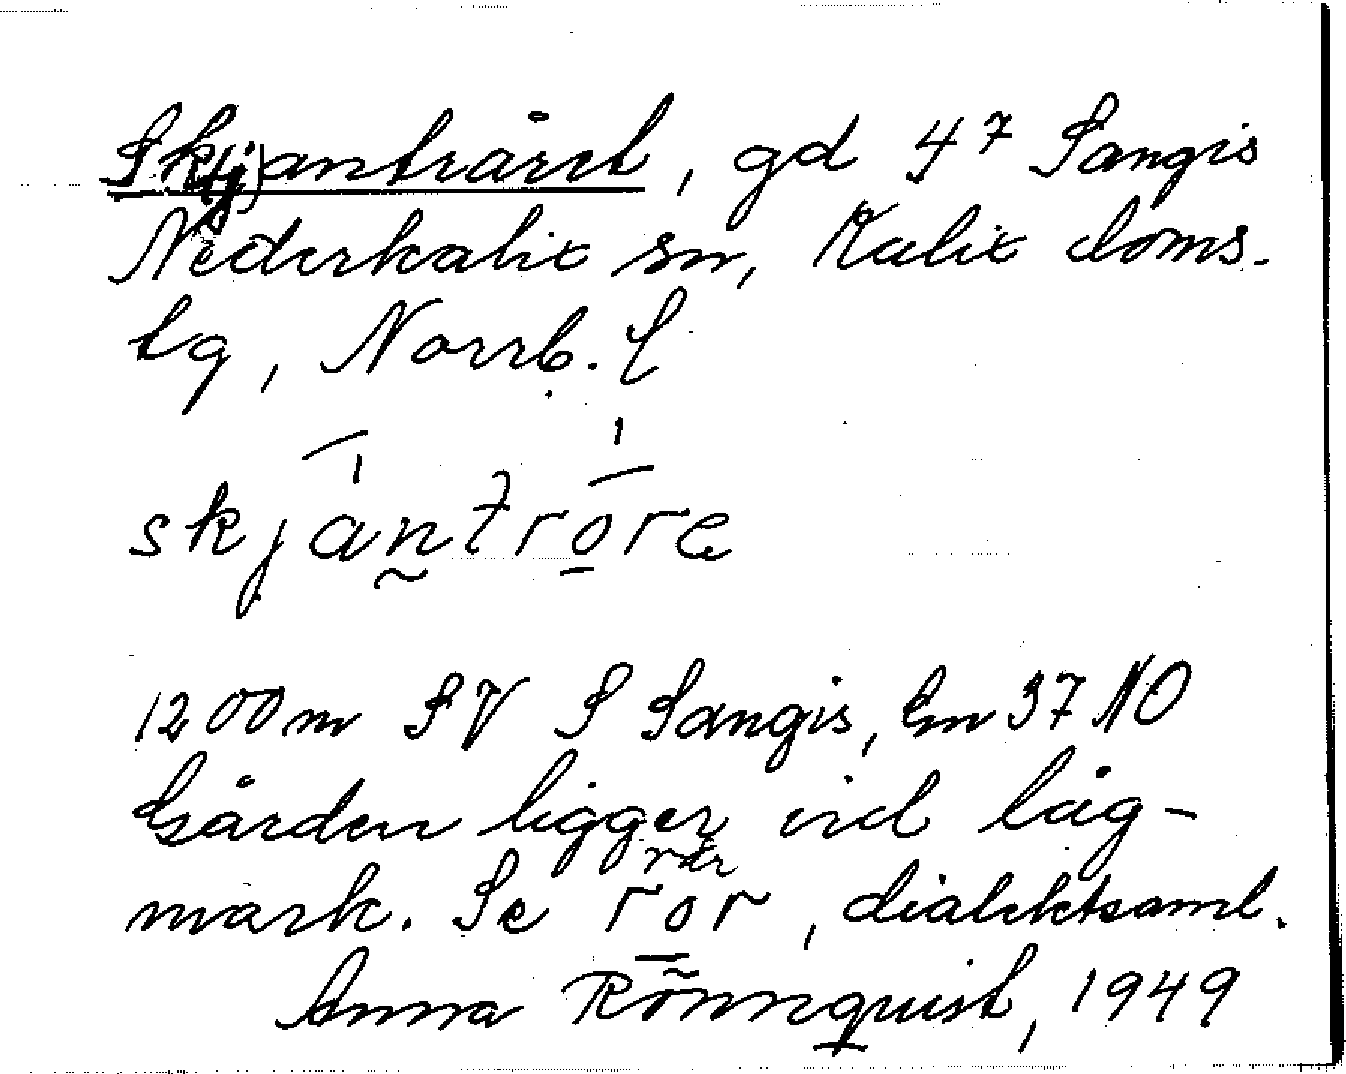 Sk(j)anträret, gd 4⁷ Sangis
Nederkalix sn, Kalix doms-
lg, Norrb. l
skjantrore
1200 m SV S Sangis, Gm 37 NO
Gården ligger vid låg-
mark. Se ror, dialektsaml.
Anna Rönnquist, 1949